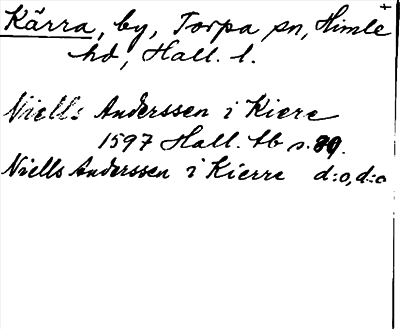 Kärra, by, Torpa sn, Himle
hd, Hall. l.
Niells Anderssen i Kiere
1597 Hall. tb s.
Niells Anderssen i Kierre d:o, d:o